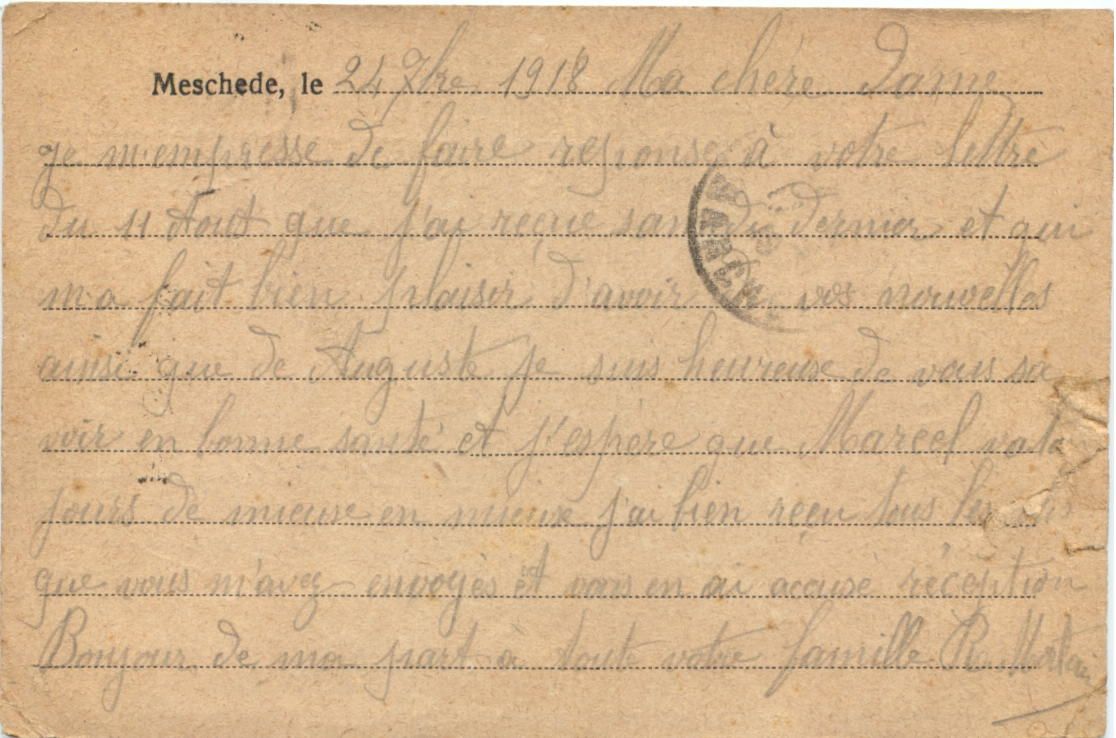 Meschede, le 24 7bre 1918 Ma chère Dame
je m'empresse de faire reponse à votre lettre
du 11 Aout que j'ai reçue samdi dernier et qui
m'a fait bien plaisir d'avoir de vos nouvelles
ainsi que de Auguste je suis heureuse de vous sa
voir en bonne santé et j'espère que Marcel va
jours de mieuse en mieux j'ai bien reçu tous les
que vous m'avez envoyés et vous en ai accusé réception
Bonjour de ma part à toute votre famille R.